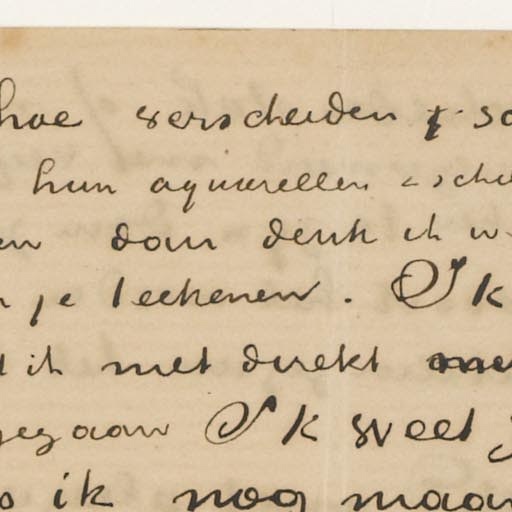 hoe verscheiden & sc
hun aquarellen & sche
en dan denk ik w
n je teekenen. Ik
t ik met direkt
gegaan Ik weet
ik nog maar